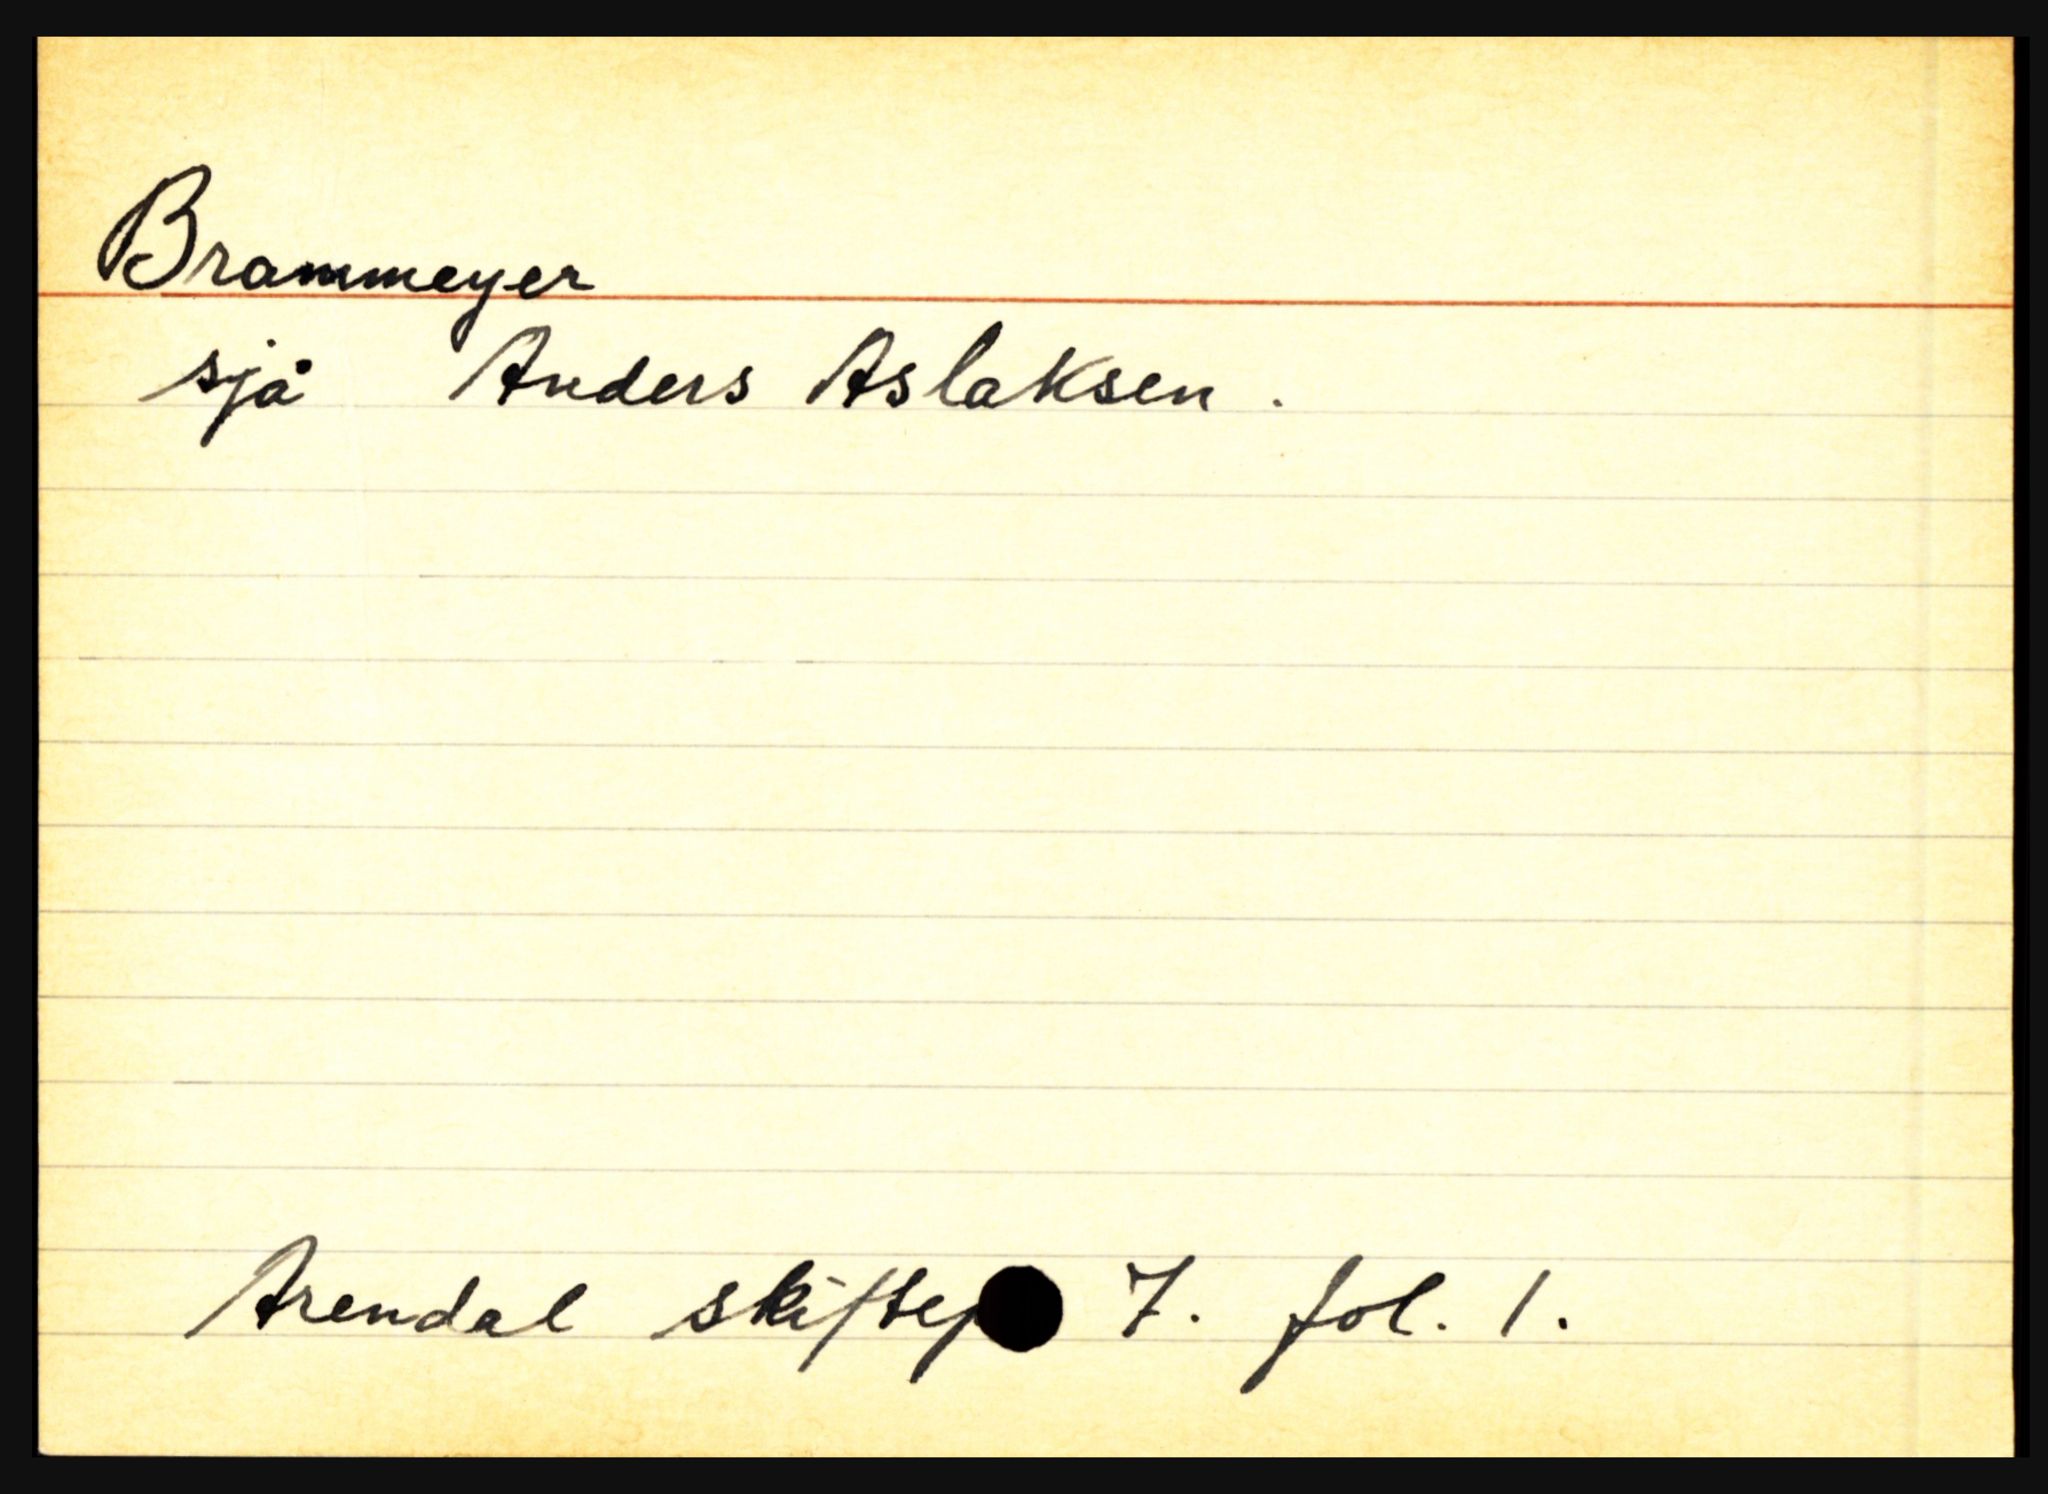 Brammeyer
sjå Anders Aslaksen.
Arendal skiftep 7. fol. 1.